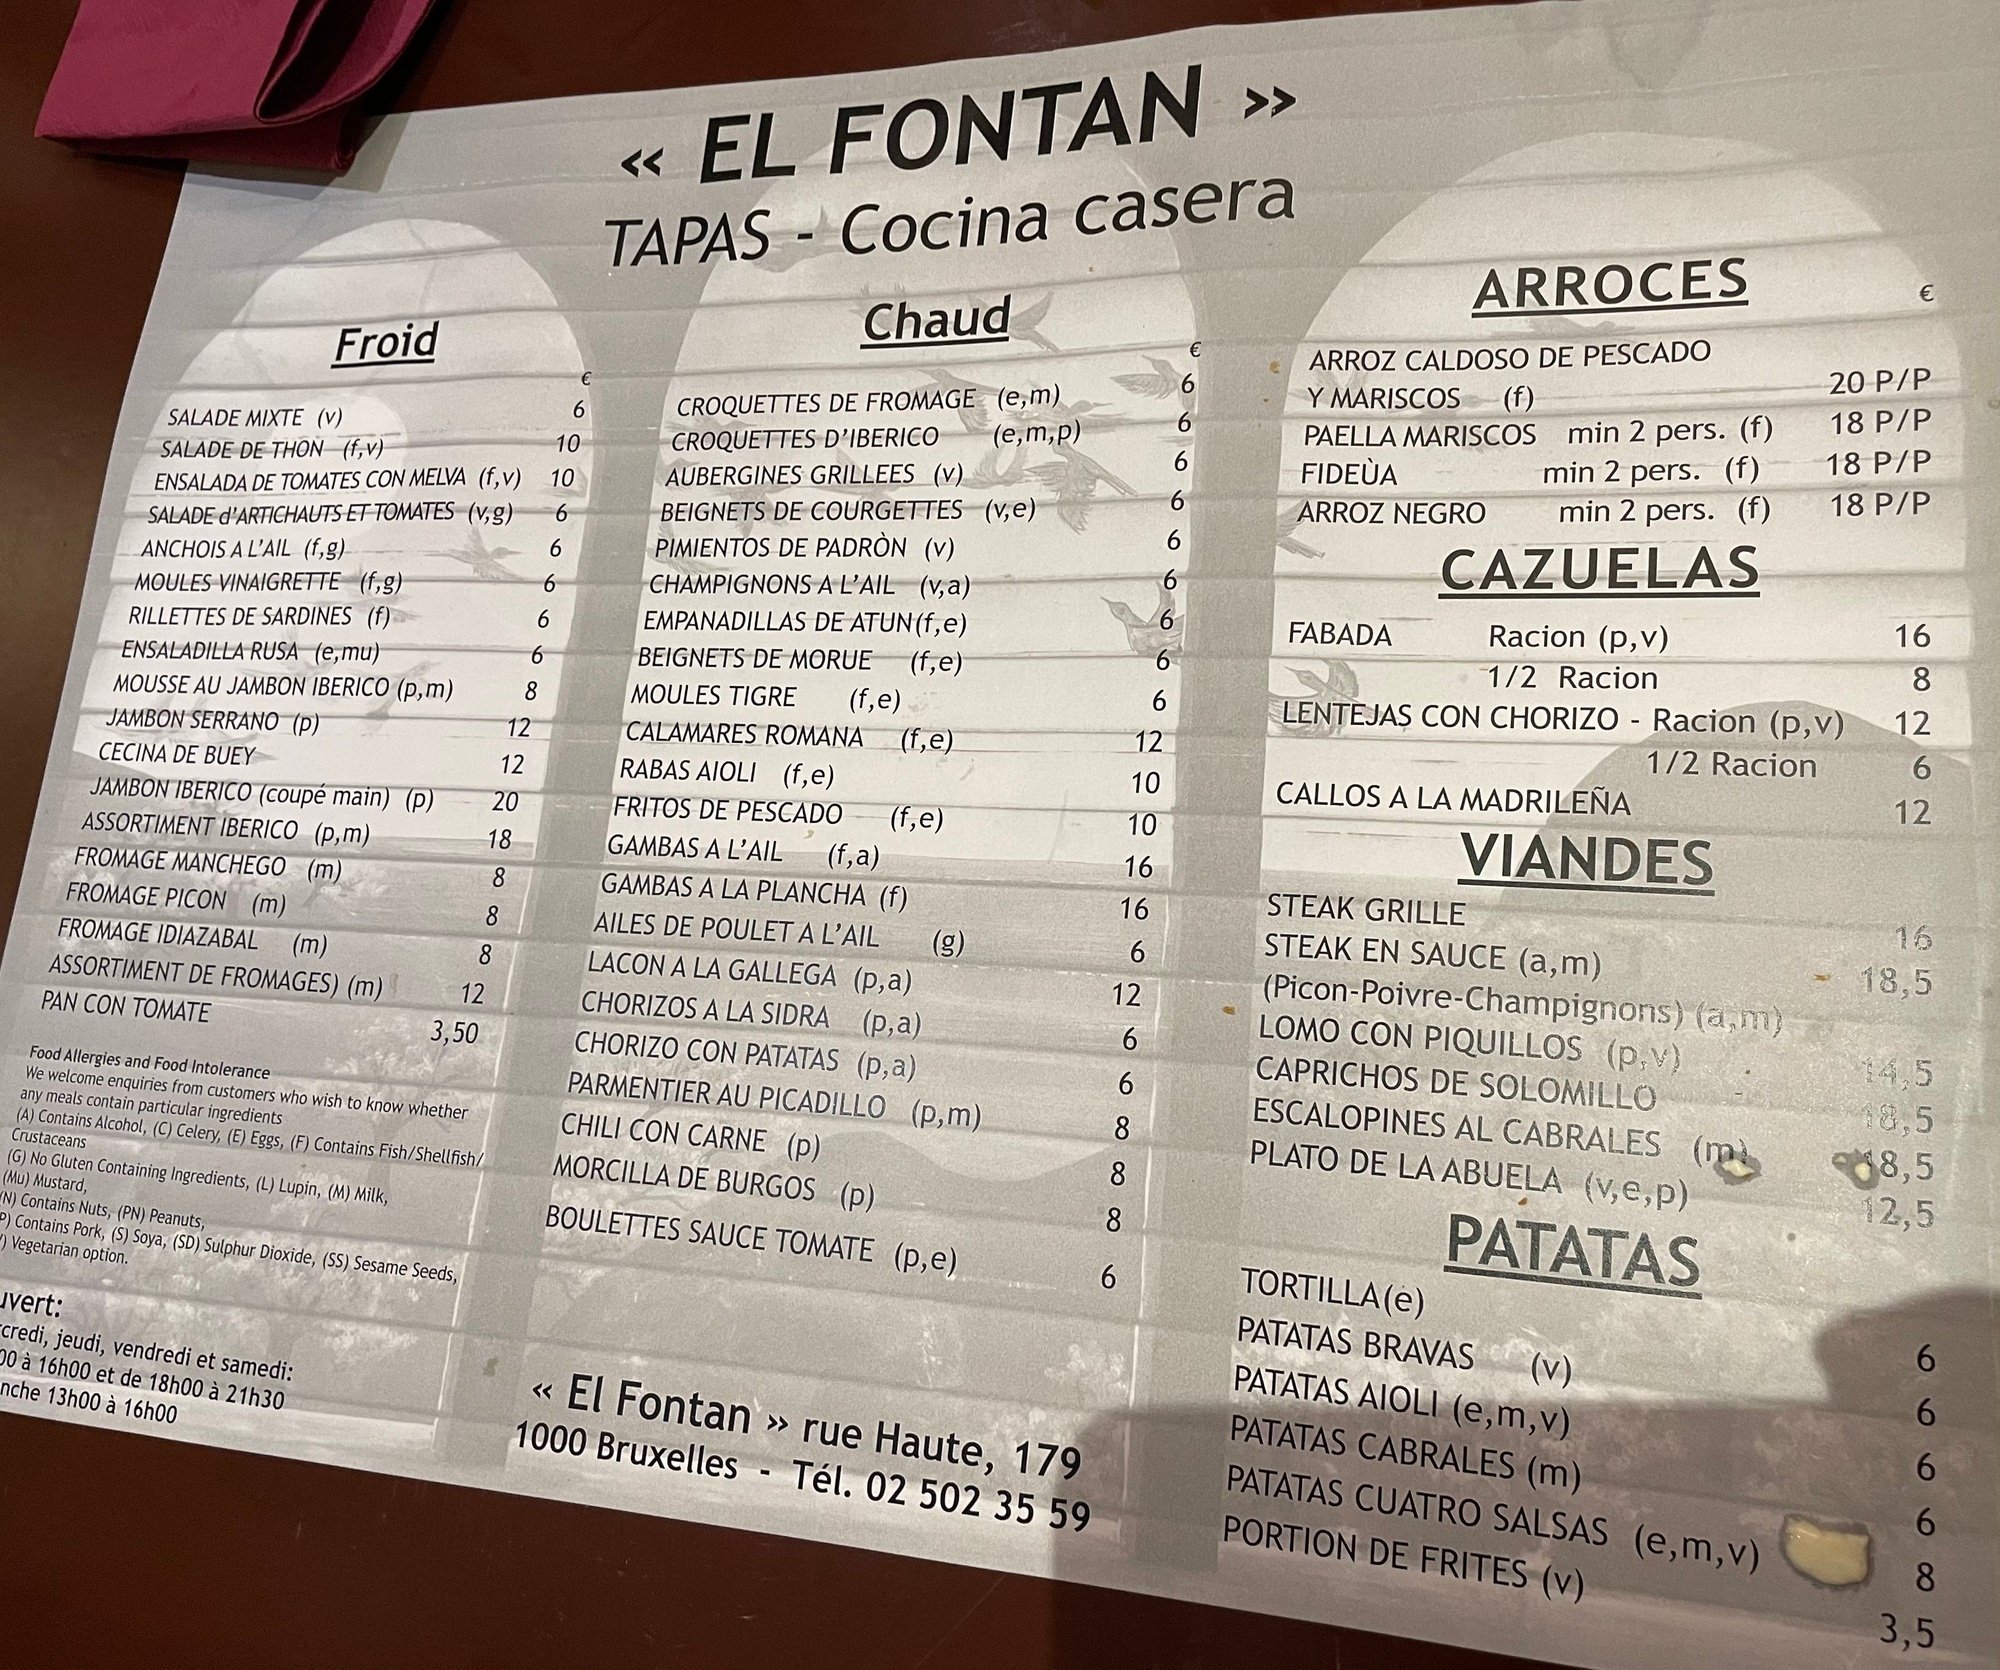 « EL FONTAN »
TAPAS - Cocina casera
Froid
€
SALADE MIXTE (v) 6
SALADE DE THON (f,v) 10
ENSALADA DE TOMATES CON MELVA (f,v) 10
SALADE d'ARTICHAUTS ET TOMATES (v,g) 6
ANCHOIS A L'AIL (f,g) 6
MOULES VINAIGRETTE (f,g) 6
RILLETTES DE SARDINES (f) 6
ENSALADILLA RUSA (e,mu) 6
MOUSSE AU JAMBON IBERICO (p,m) 8
JAMBON SERRANO (p) 12
CECINA DE BUEY 12
JAMBON IBERICO (coupé main) (p) 20
ASSORTIMENT IBERICO (p,m) 18
FROMAGE MANCHEGO (m) 8
FROMAGE PICON (m) 8
FROMAGE IDIAZABAL (m) 8
ASSORTIMENT DE FROMAGES) (m) 12
PAN CON TOMATE 3,50
Food Allergies and Food Intolerance
We welcome enquiries from customers who wish to know whether
any meals contain particular ingredients
(A) Contains Alcohol, (C) Celery, (E) Eggs, (F) Contains Fish/Shellfish/
Crustaceans
(G) No Gluten Containing Ingredients, (L) Lupin, (M) Milk,
(Mu) Mustard,
N) Contains Nuts, (PN) Peanuts,
P) Contains Pork, (S) Soya, (SD) Sulphur Dioxide, (SS) Sesame Seeds,
) Vegetarian option.
uvert:
credi, jeudi, vendredi et samedi:
00 à 16h00 et de 18h00 à 21h30
nche 13h00 à 16h00
Chaud
€
CROQUETTES DE FROMAGE (e,m) 6
CROQUETTES D'IBERICO (e,m,p) 6
AUBERGINES GRILLEES (v) 6
BEIGNETS DE COURGETTES (v,e) 6
PIMIENTOS DE PADRÒN (v) 6
CHAMPIGNONS A L'AIL (v,a) 6
EMPANADILLAS DE ATUN(f,e) 6
BEIGNETS DE MORUE (f,e) 6
MOULES TIGRE (f,e) 6
CALAMARES ROMANA (f,e) 12
RABAS AIOLI (f,e) 10
FRITOS DE PESCADO (f,e) 10
GAMBAS A L'AIL (f,a) 16
GAMBAS A LA PLANCHA (f) 16
AILES DE POULET A L'AIL (g) 6
LACON A LA GALLEGA (p,a) 12
CHORIZOS A LA SIDRA (p,a) 6
CHORIZO CON PATATAS (p,a) 6
PARMENTIER AU PICADILLO (p,m) 8
CHILI CON CARNE (p) 8
MORCILLA DE BURGOS (p) 8
BOULETTES SAUCE TOMATE (p,e) 6
« El Fontan » rue Haute, 179
1000 Bruxelles - Tél. 02 502 35 59
ARROCES
€
ARROZ CALDOSO DE PESCADO
Y MARISCOS (f) 20 P/P
PAELLA MARISCOS min 2 pers. (f) 18 P/P
FIDEÙA min 2 pers. (f) 18 P/P
ARROZ NEGRO min 2 pers. (f) 18 P/P
CAZUELAS
FABADA Racion (p,v) 16
1/2 Racion 8
LENTEJAS CON CHORIZO - Racion (p,v) 12
1/2 Racion 6
CALLOS A LA MADRILEÑA 12
VIANDES
STEAK GRILLE 16
STEAK EN SAUCE (a,m) 18,5
(Picon-Poivre-Champignons) (a,m)
LOMO CON PIQUILLOS (p,v) 14,5
CAPRICHOS DE SOLOMILLO 18,5
ESCALOPINES AL CABRALES (m) 18,5
PLATO DE LA ABUELA (v,e,p) 12,5
PATATAS
TORTILLA(e) 6
PATATAS BRAVAS (v) 6
PATATAS AIOLI (e,m,v) 6
PATATAS CABRALES (m) 6
PATATAS CUATRO SALSAS (e,m,v) 8
PORTION DE FRITES (v) 3,5